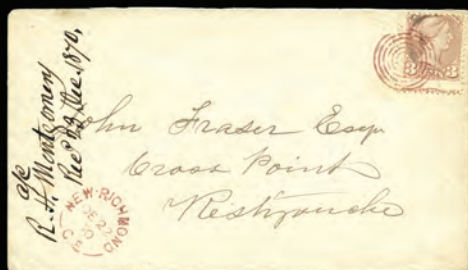 a/c
R. H. Montgomery
Rec'd 23 Dec. 1870,
3 3
John Fraser Esqr
Cross Point
Restigouche
NEW-RICHMOND
DE 22
C E